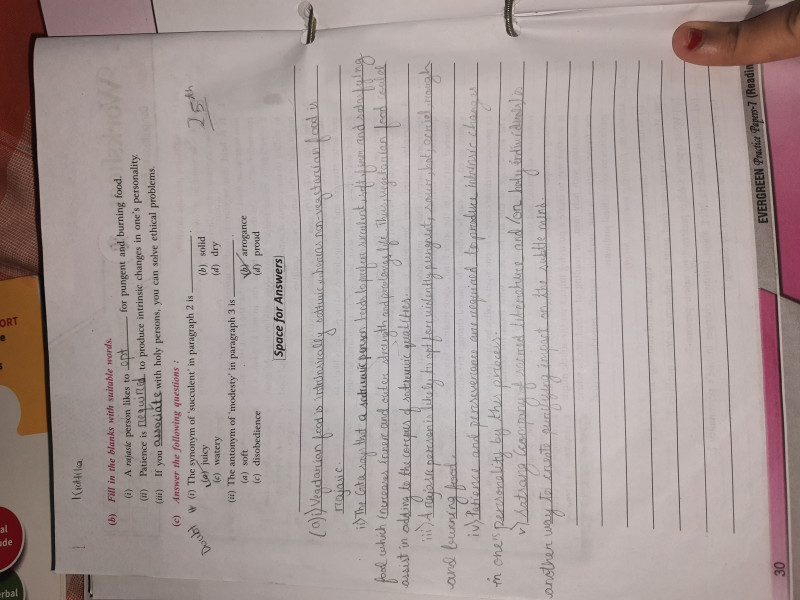 Kritika
(b) Fill in the blanks with suitable words.
(i) A rajasic person likes to opt for pungent and burning food.
(ii) Patience is required to produce intrinsic changes in one's personality.
(iii) If you associate with holy persons, you can solve ethical problems.
(c) Answer the following questions :
Doubt (i) The synonym of 'succulent' in paragraph 2 is
(a) juicy (b) solid
(c) watery (d) dry
25th
(ii) The antonym of 'modesty' in paragraph 3 is
(a) soft (b) arrogance
(c) disobedience (d) proud
Space for Answers
i) Vegetarian food is intrinsically sattvic whereas non-vegetarian food is
rajasic.
ii) The Gita says that a sattvic person tends to prefer succulent soft firm and satisfying
food which increases and strength and prolongs life. Thus vegetarian food
assist in adding to the corpus of qualities.
iii) A rajasic person is likely to opt for pungent, sour, hot,
and burning food.
iv) Patience and perseverance are required to produce intrinsic changes
in one's personality by this process.
v) company of sacred literature and/or holy individuals is
another way to create purifying impact on the subtle mind.
30
EVERGREEN Practice Papers-7 (Readin
ORT
al
ude
rbal